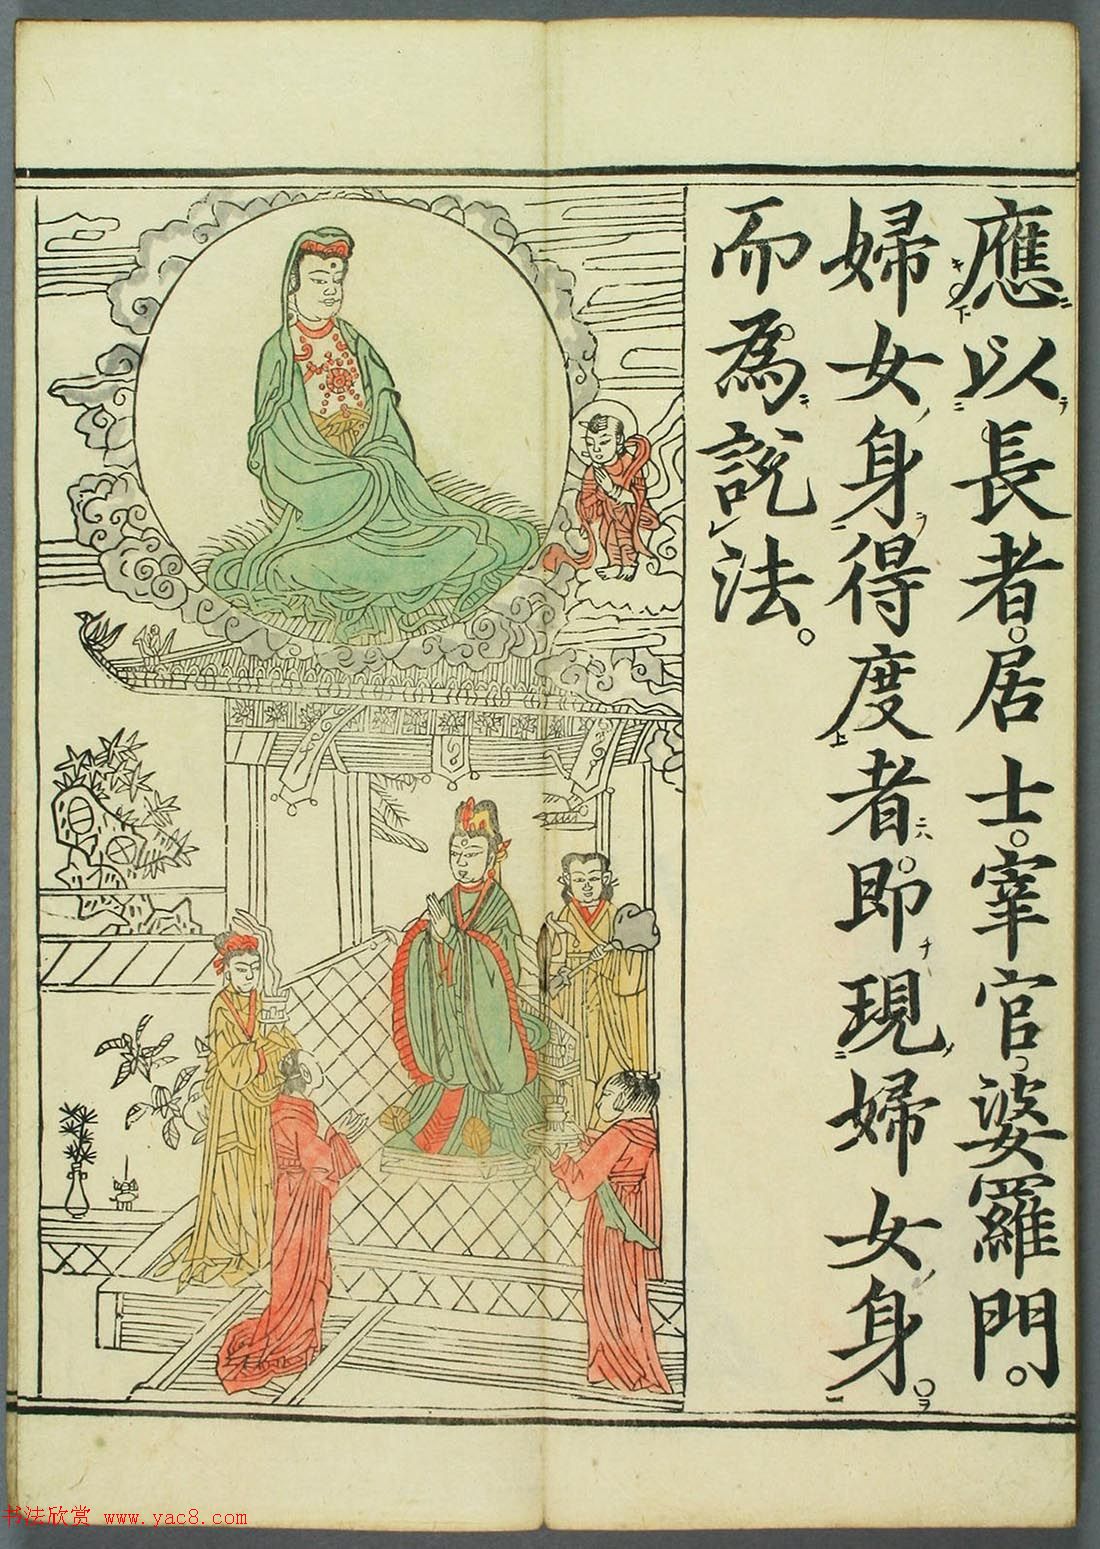 應以長者。居士。宰官婆羅門。
婦女身得度者。即現婦女身。
而為說法。
书法欣赏 www.yac8.com